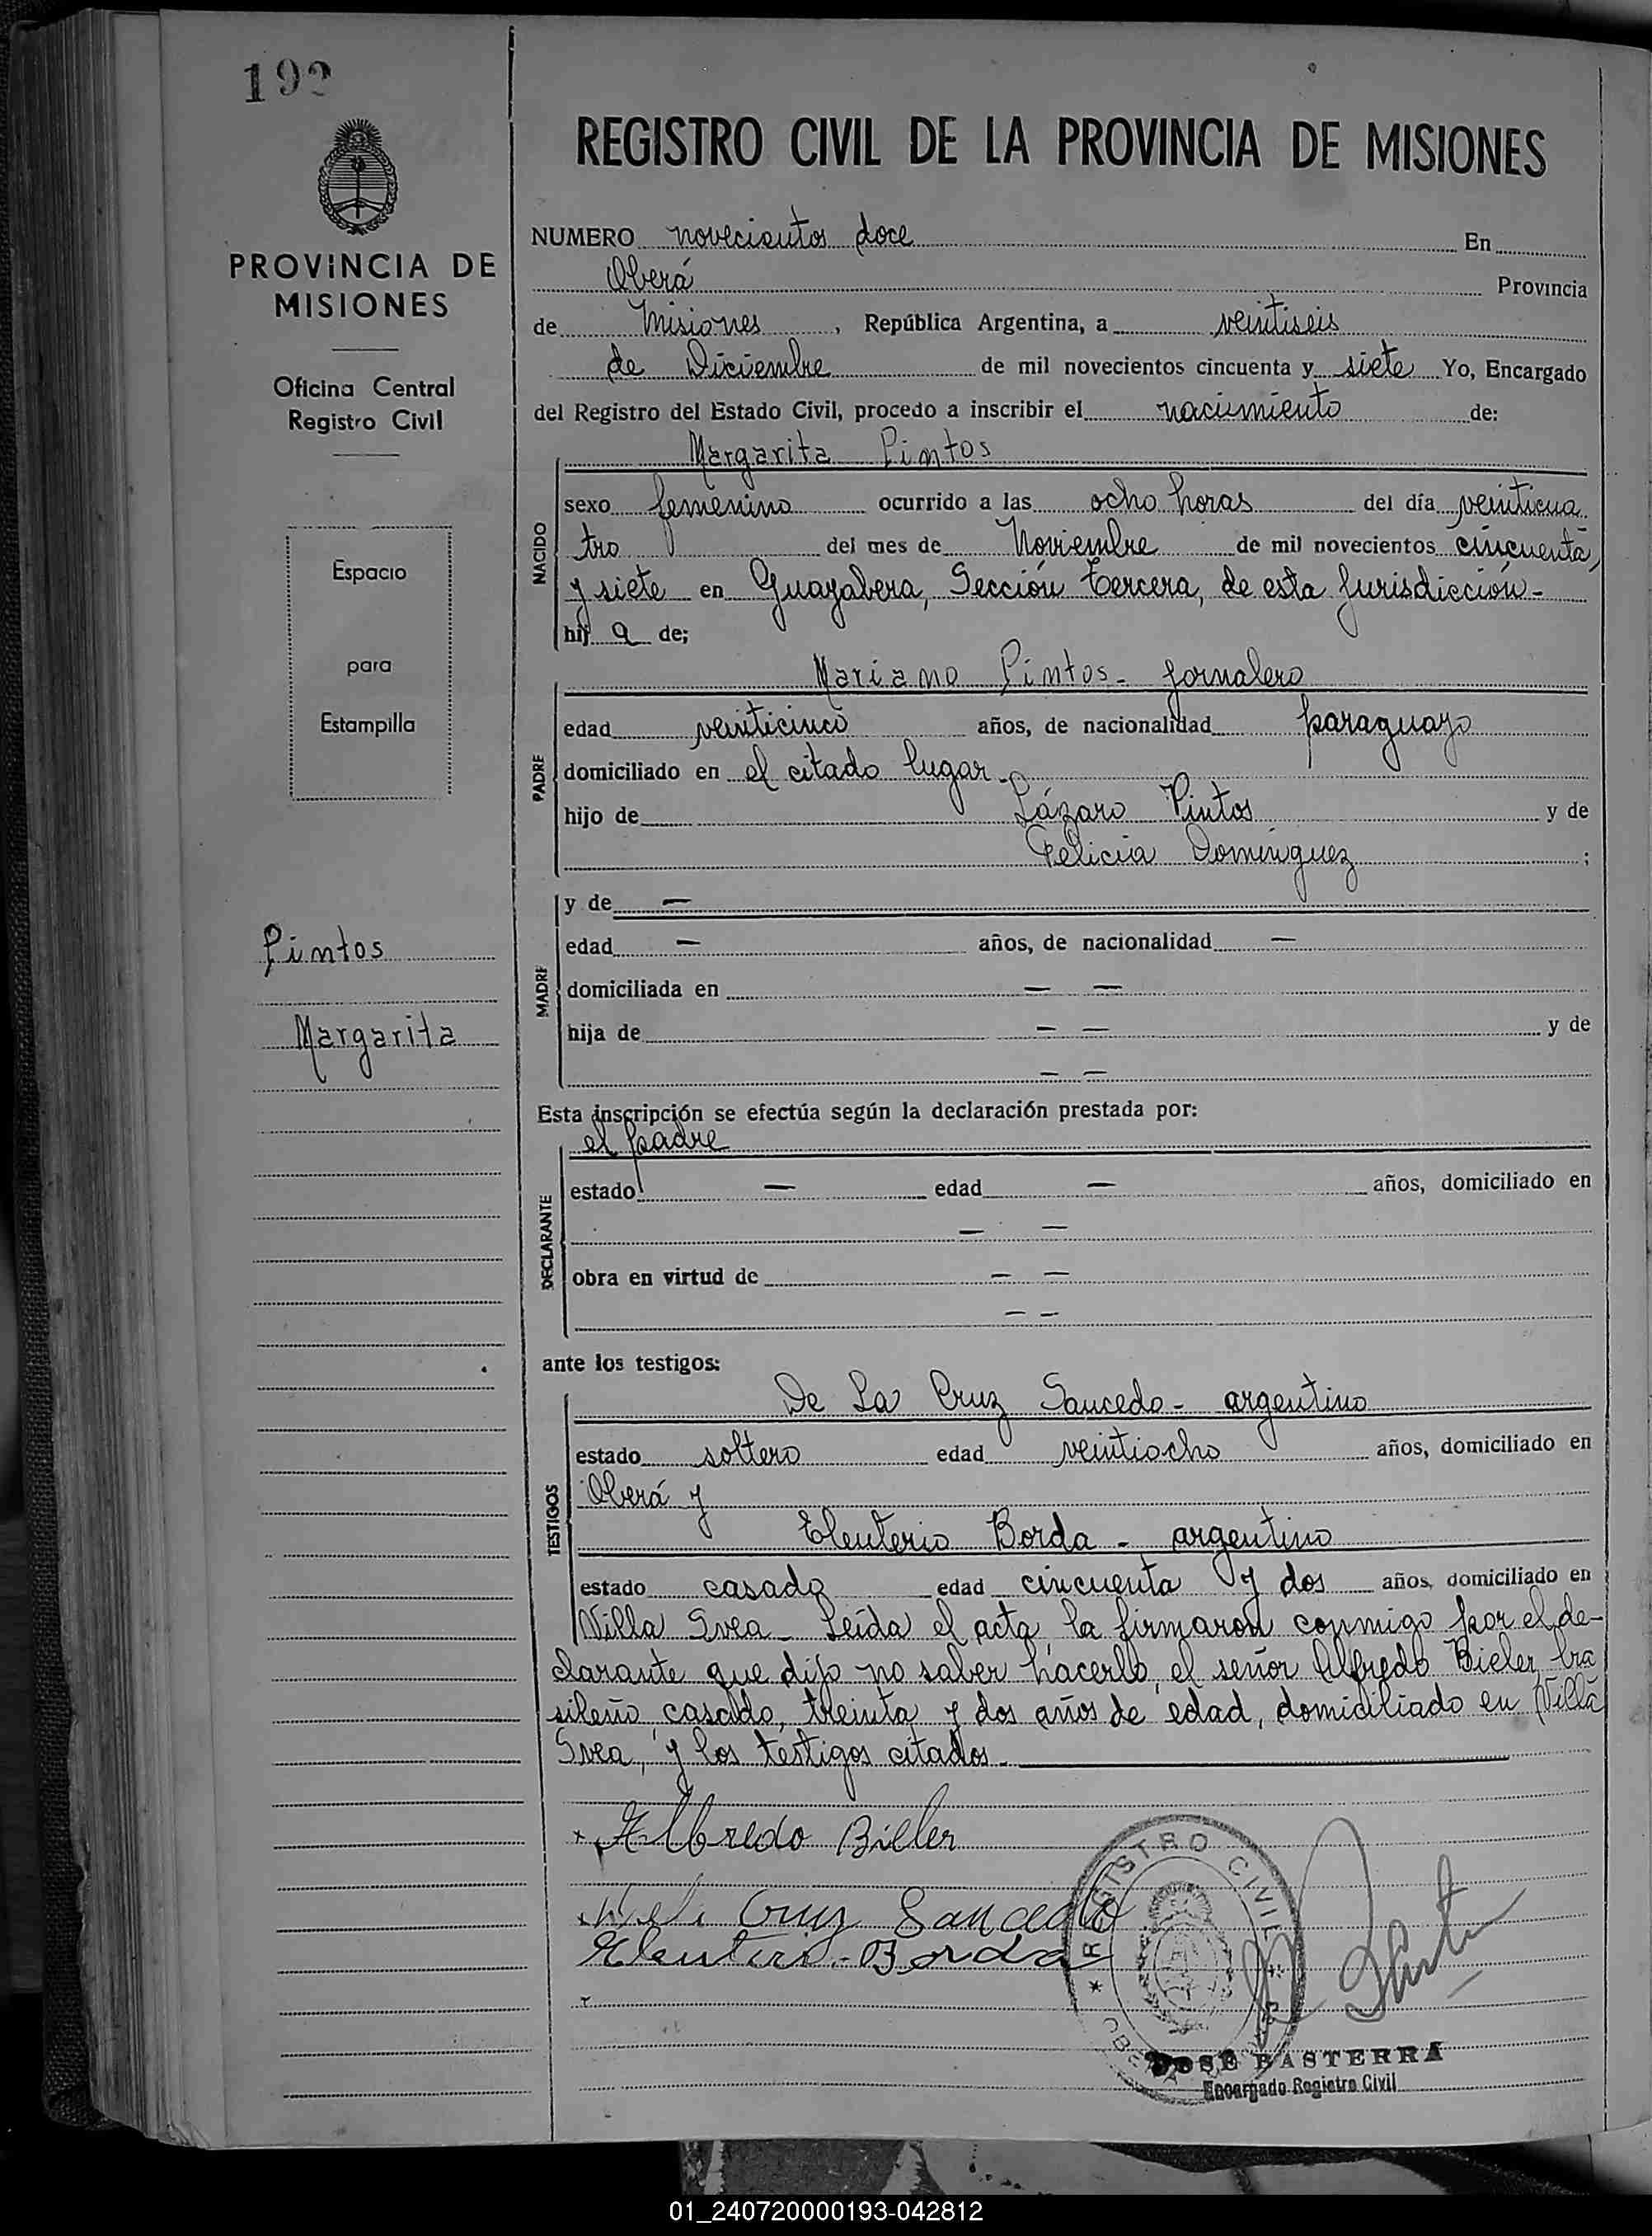 192
REGISTRO CIVIL DE LA PROVINCIA DE MISIONES
PROVINCIA DE
MISIONES
Oficina Central
Registro Civil
Espacio
para
Estampilla
Pintos
Margarita
NUMERO novecientos doce En
Oberá Provincia
de Misiones, República Argentina, a veintiseis
de Diciembre de mil novecientos cincuenta y siete Yo, Encargado
del Registro del Estado Civil, procedo a inscribir el nacimiento de:
Margarita Pintos
NACIDO
sexo femenino ocurrido a las ocho horas del día veinticua
tro del mes de Noviembre de mil novecientos cincuenta
y siete en Guayabera, Sección tercera, de esta Jurisdicción-
hij a de;
Mariano Pintos- Jornalero
PADRE
edad veinticinco años, de nacionalidad paraguayo
domiciliado en el citado lugar-
hijo de Lázaro Pintos y de
Felicia Dominguez ;
MADRE
y de —
edad — años, de nacionalidad —
domiciliada en — —
hija de — — y de
— —
Esta inscripción se efectúa según la declaración prestada por:
el padre
DECLARANTE
estado — edad — años, domiciliado en
— —
obra en virtud de — —
— —
ante los testigos:
De La Cruz Saucedo- argentino
TESTIGOS
estado soltero edad veintiocho años, domiciliado en
Oberá y
Eleuterio Borda - argentino
estado casado edad cincuenta y dos años, domiciliado en
Villa Svea- Leída el acta, la firmaron conmigo por el de-
clarante que dijo no saber hacerlo, el señor Alfredo Bieler, bra
sileño, casado, treinta y dos años de edad, domiciliado en Villa
Svea, y los testigos citados.
Alfredo Bieler
Cruz Saucedo
Eleuterio Borda
REGISTRO CIVIL
JOSE BASTERRA
Encargado Registro Civil
01_240720000193-042812